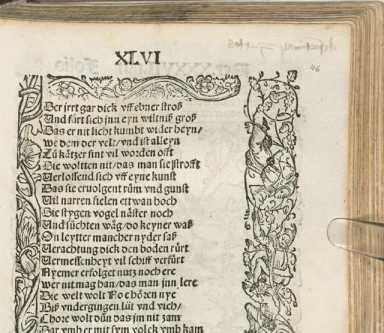 XLVI
46
Der jrrt gar dick vff ebner stroß
Vnd fürt sich jnn eyn wiltniß groß
Das er nit licht kumbt wider heyn/
we dem der velt/ vnd ist alleyn
Zů kätzer sint vil worden offt
Die woltten nit/ das man sie strofft
Verlossend sich vff eyne kunst
Das sie eruolgent rům vnd gunst
Vil narren fielen ettwan hoch
Die stygen vogel näster noch
Vnd sůchten wäg/ do keyner was
On leytter mancher nyder saß
Verachtung dick den boden rürt
Vermessenheyt vil schiff verfürt
Nyemer erfolget nutz noch ere
wer nit mag han/ das man jnn lere
Die welt wolt Noe hören nye
Biß vndergingen lüt vnd viech/
Chore wolt důn das jn nit zam
Dar vmb er mit sym volck vmb kam